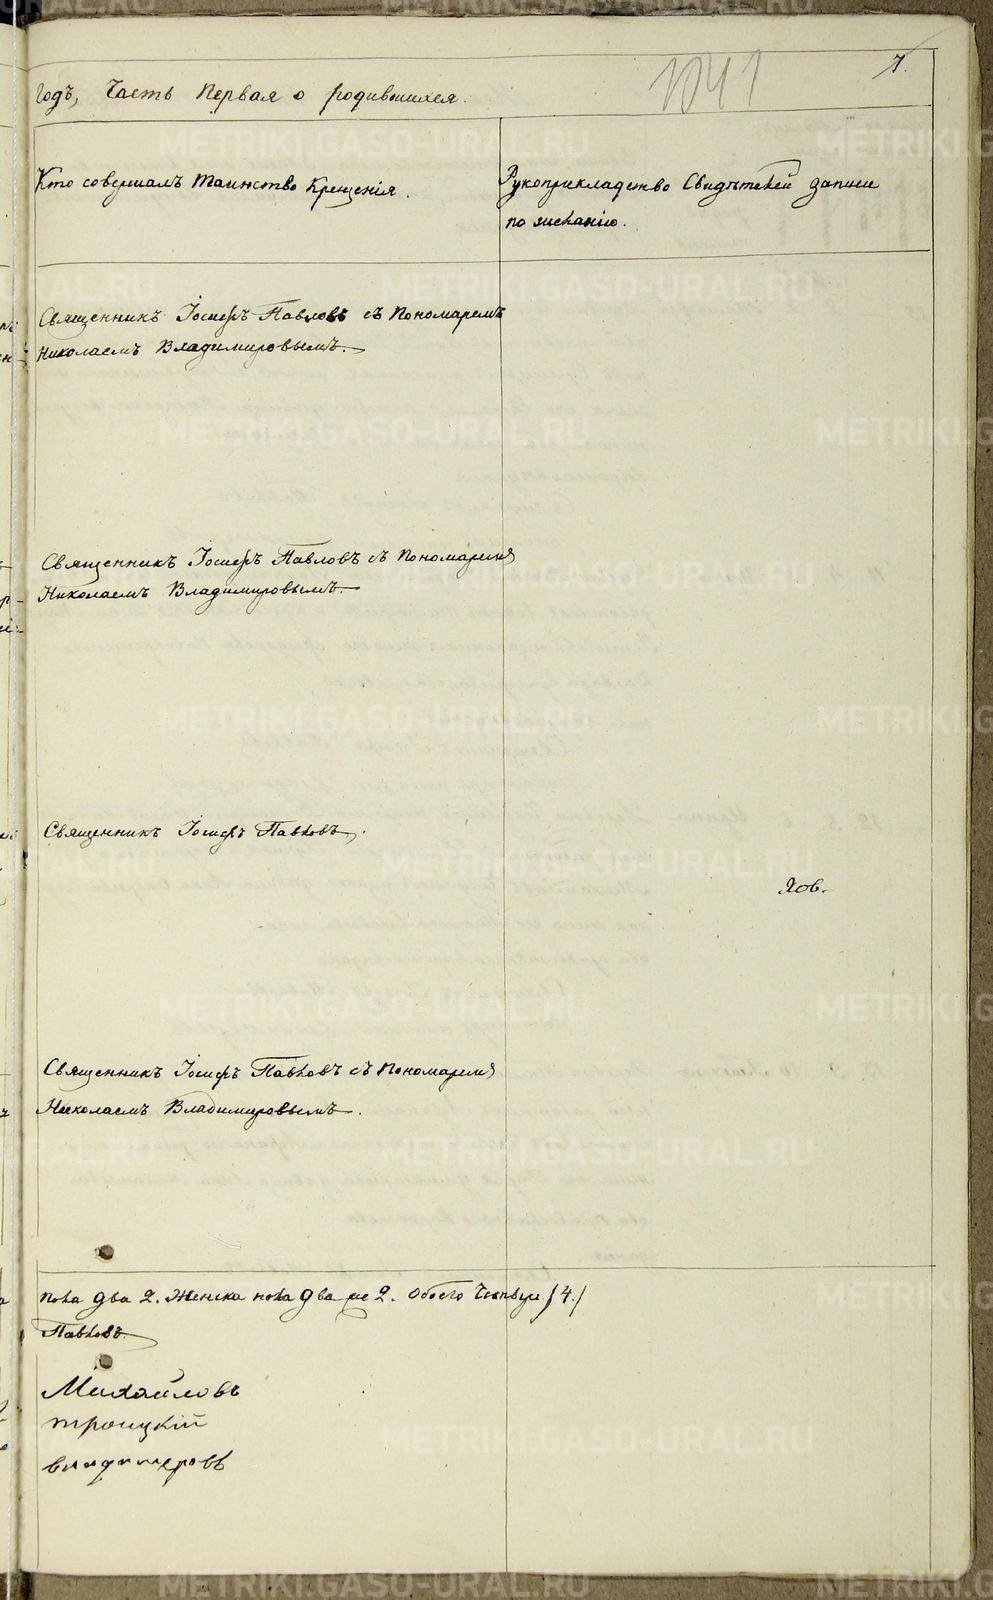 7.
1041
Годъ, Часть Первая о родившихся.
Кто совершалъ Таинство Крещенія.
Рукоприкладство Свидѣтелей записи
по желанію.
Священникъ Іосифъ Павловъ съ Пономаремъ
Николаемъ Владимировымъ.
Священникъ Іосифъ Павловъ съ Пономаремъ
Николаемъ Владимировымъ.
Священникъ Іосифъ Павловъ.
Хов.
Священникъ Іосифъ Павловъ съ Пономаремъ
Николаемъ Владимировымъ.
пола два 2. Женска пола два 2. Обоего /4./
Павловъ
Михайловъ
троицкій
владимировъ
METRIKI.GASO-URAL.RU